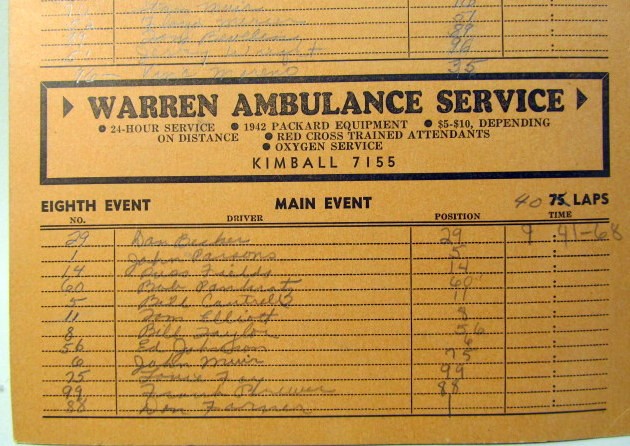 87
89
96
35
WARREN AMBULANCE SERVICE
● 24-HOUR SERVICE ● 1942 PACKARD EQUIPMENT ● $5-$10, DEPENDING
ON DISTANCE ● RED CROSS TRAINED ATTENDANTS
● OXYGEN SERVICE
KIMBALL 7155
EIGHTH EVENT MAIN EVENT 40 75 LAPS
NO. DRIVER POSITION TIME
29 Dan Becker 29 9 41-68
1 John Parsons 5
14 Russ Fields 14
60 Bob 60
5 Bill Cantrell 11
11 Tom Elliott 8
8 Bill Taylor 56
56 Ed Johnson 6
6 John Muir 75
75 99
99 Frank Brewer 88
88 Don Farmer 1